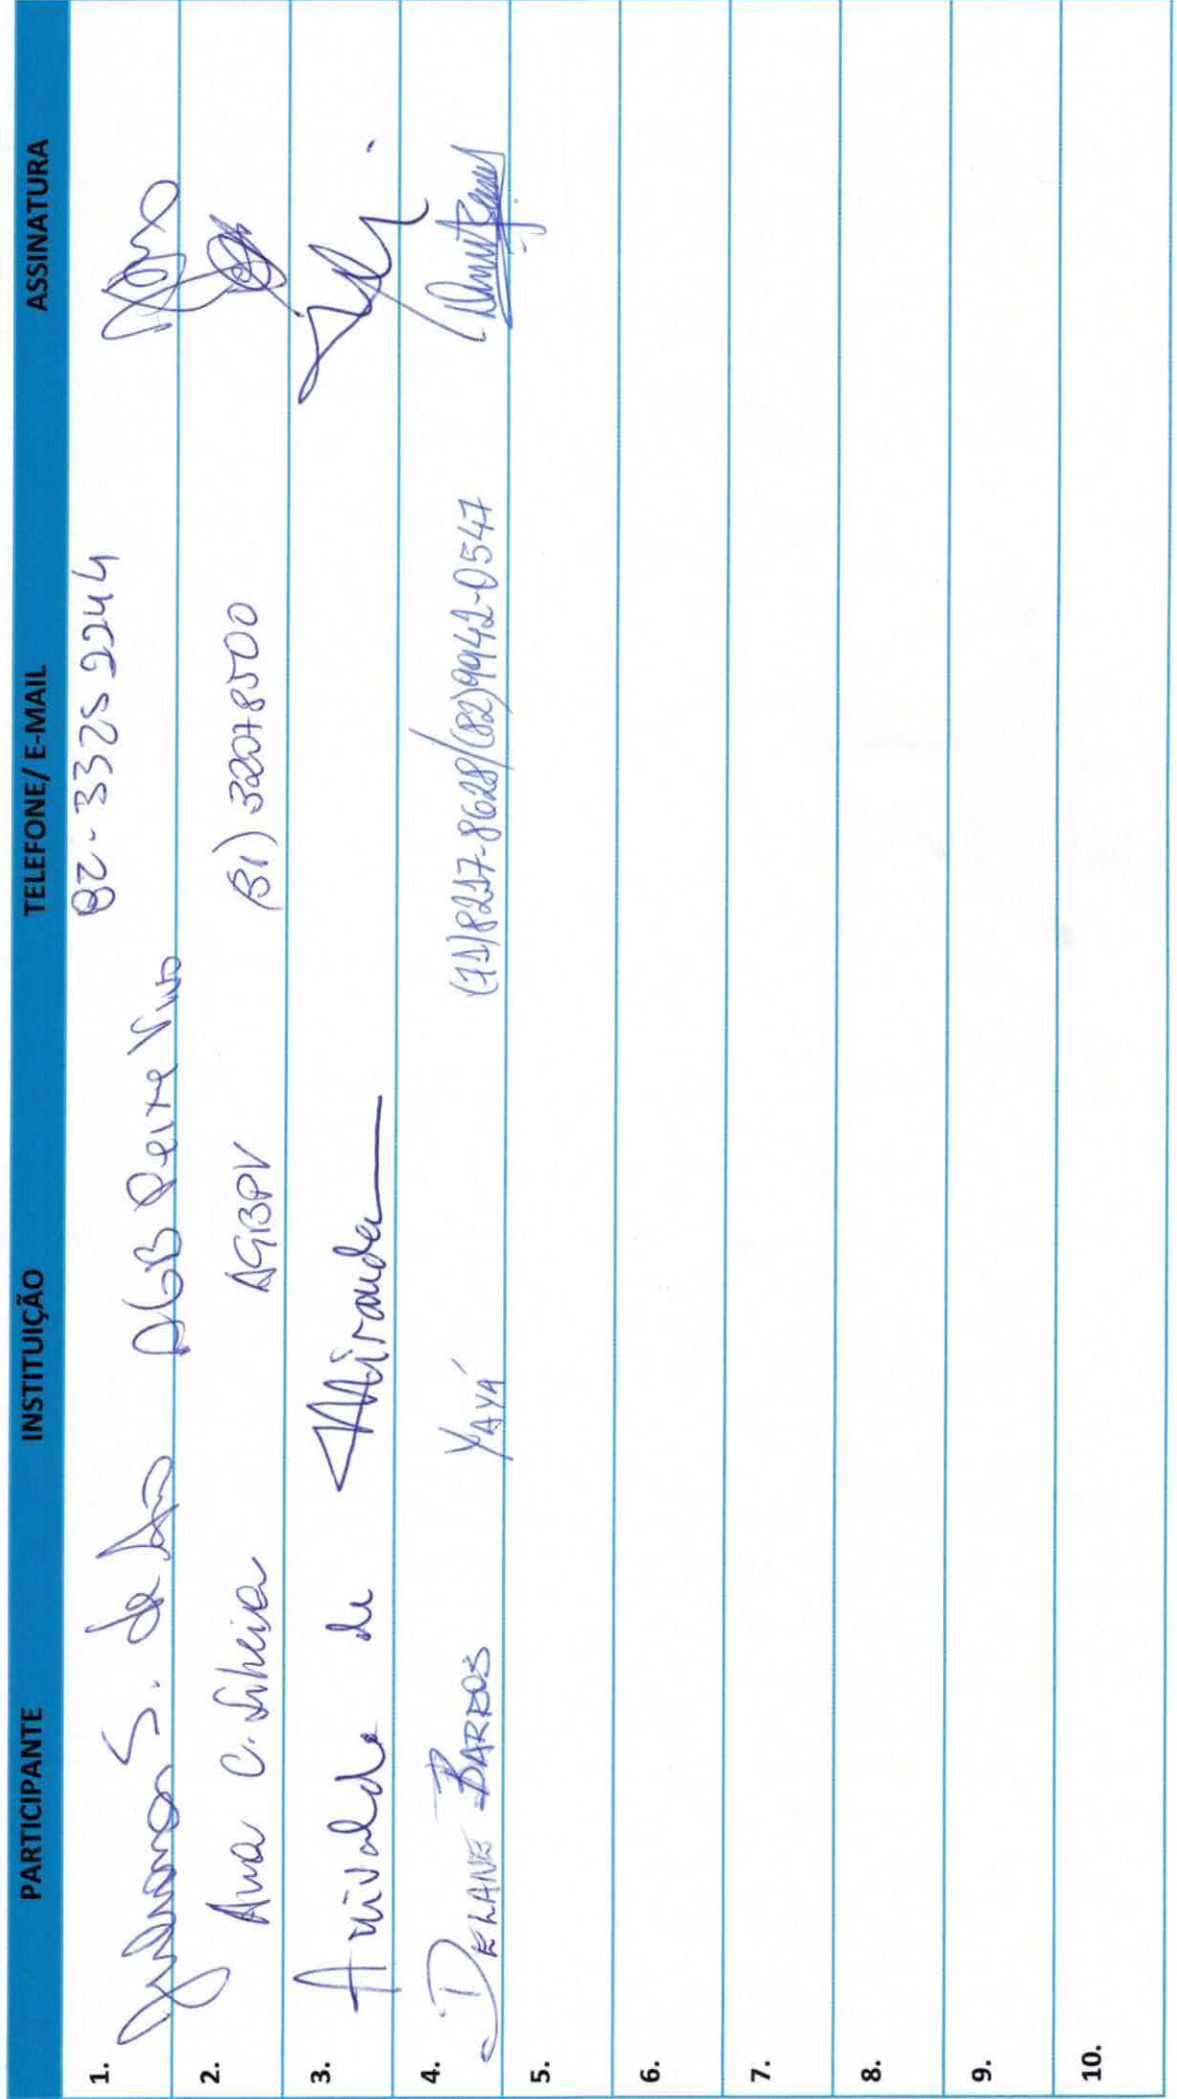 PARTICIPANTE INSTITUIÇÃO TELEFONE/ E-MAIL ASSINATURA
1. S. de AGB Peixe Vivo 82-3325 2244
2. Ana C. AGBPV (31) 32078500
3. Anivaldo de Miranda
4. DELANE BARROS YAYÁ (71)8217-8628/(82)9942-0547
5.
6.
7.
8.
9.
10.